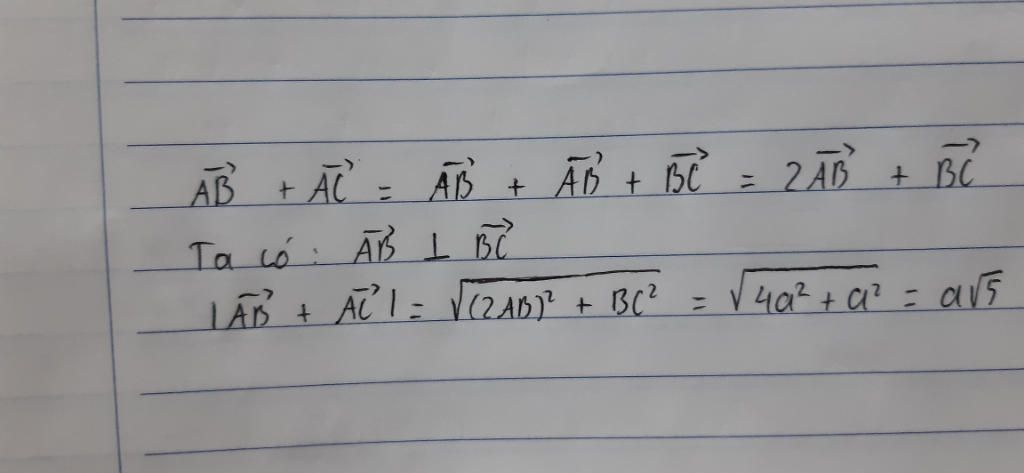 $\overrightarrow{AB} + \overrightarrow{AC} = \overrightarrow{AB} + \overrightarrow{AB} + \overrightarrow{BC} = 2\overrightarrow{AB} + \overrightarrow{BC}$
Ta có : $\overrightarrow{AB} \perp \overrightarrow{BC}$
$|\overrightarrow{AB} + \overrightarrow{AC}| = \sqrt{(2AB)^2 + BC^2} = \sqrt{4a^2 + a^2} = a\sqrt{5}$